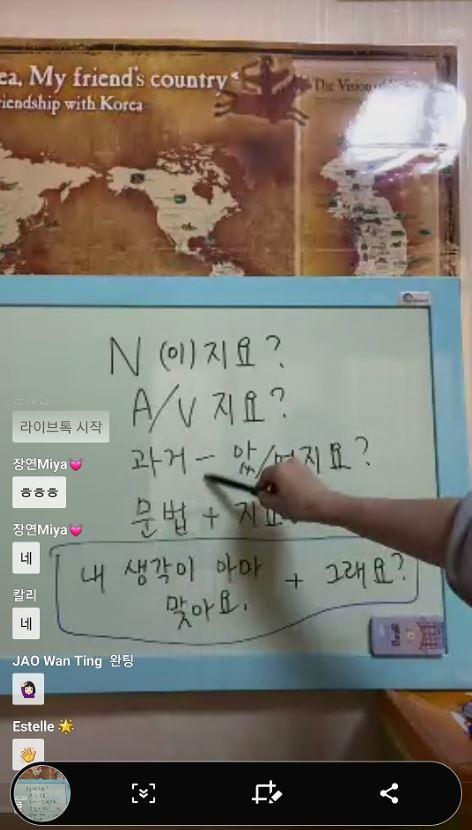 ea, My friend's country
riendship with Korea
The Vision of
N (이)지요?
A/V 지요?
과거 - 았/었지요?
문법 + 지요
내 생각이 아마 + 그래요?
맞아요.
라이브톡 시작
장연Miya💓
ㅎㅎㅎ
장연Miya💓
네
칼리
네
JAO Wan Ting 완팅
🙋🏻‍♀️
Estelle 🌟
👋